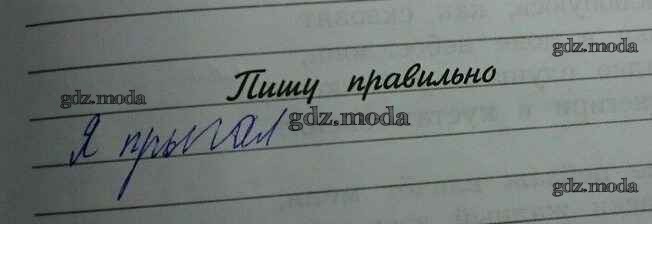 gdz.moda
Пишу правильно
gdz.moda
Я прыгал
gdz.moda
gdz.moda